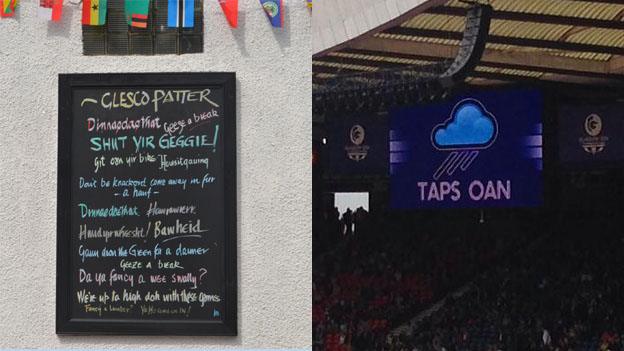 ~ GLESCO PATTER
Dinnaedaethat Geeze a break
SHUT YIR GEGGIE!
Git oan yir bike Howsitgauing
Don't be knackyord come away in fur
- a hauf -
Dinnaedaethat
Haudyirwheesht! Bawheid
Gaun doon the Green for a dauner
Geeze a break
Da ya fancy a wee swally?
We're up to high doh with these games
TAPS OAN